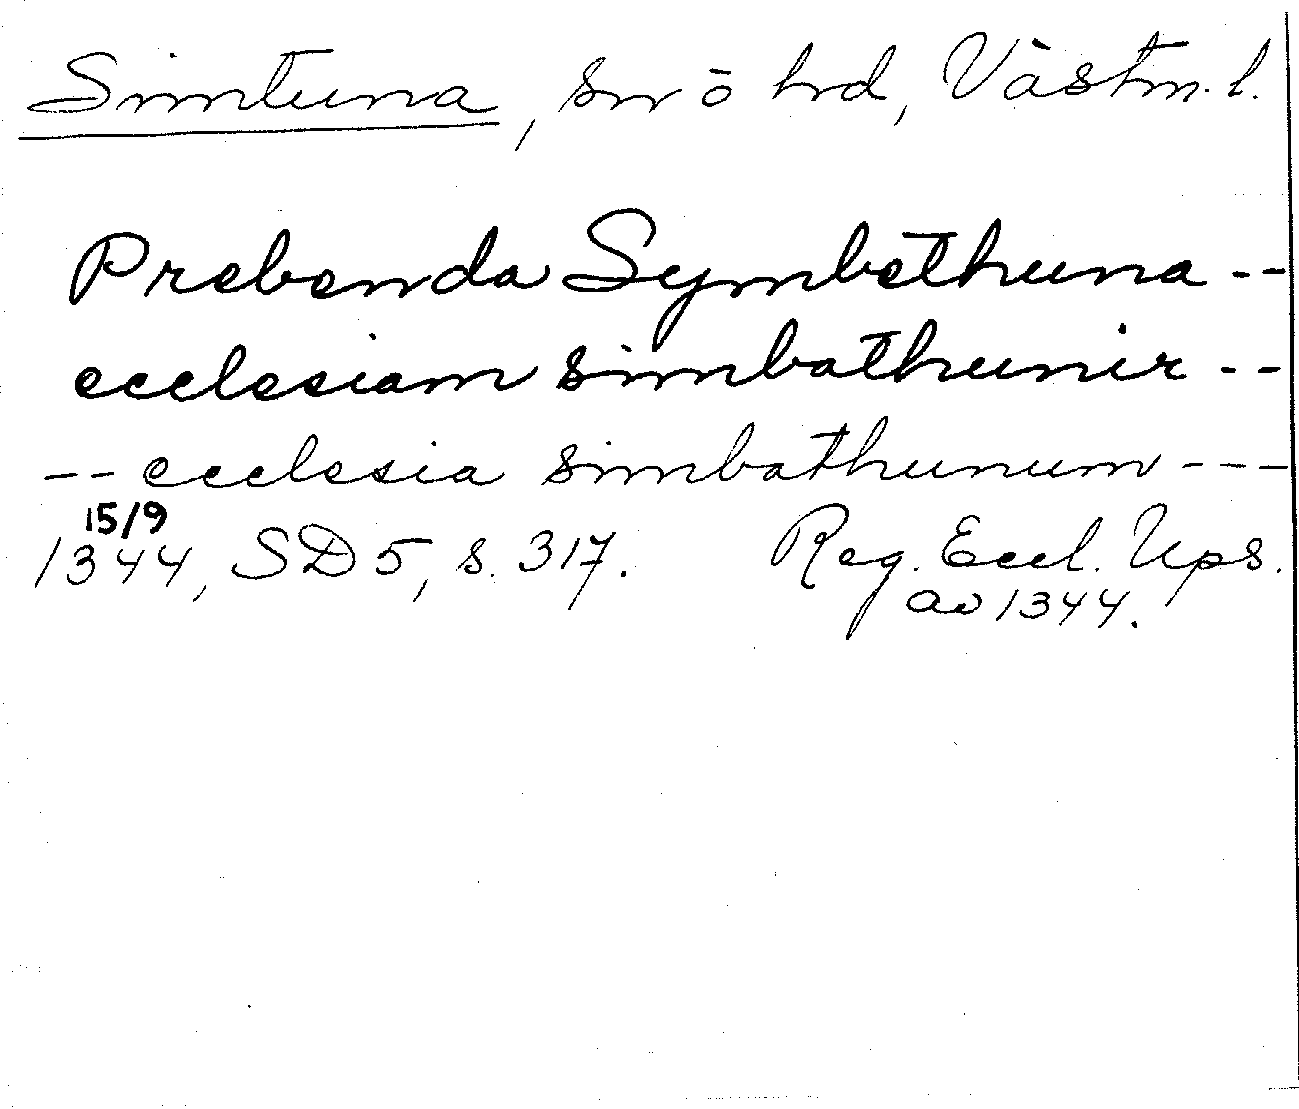 Simtuna, sn o hd, Västm. l.
Prebenda Symbethuna --
ecclesiam simbathunir --
-- ecclesia simbathunum ---
15/9
1344, SD 5, s. 317. Reg. Eccl. Ups.
av 1344.